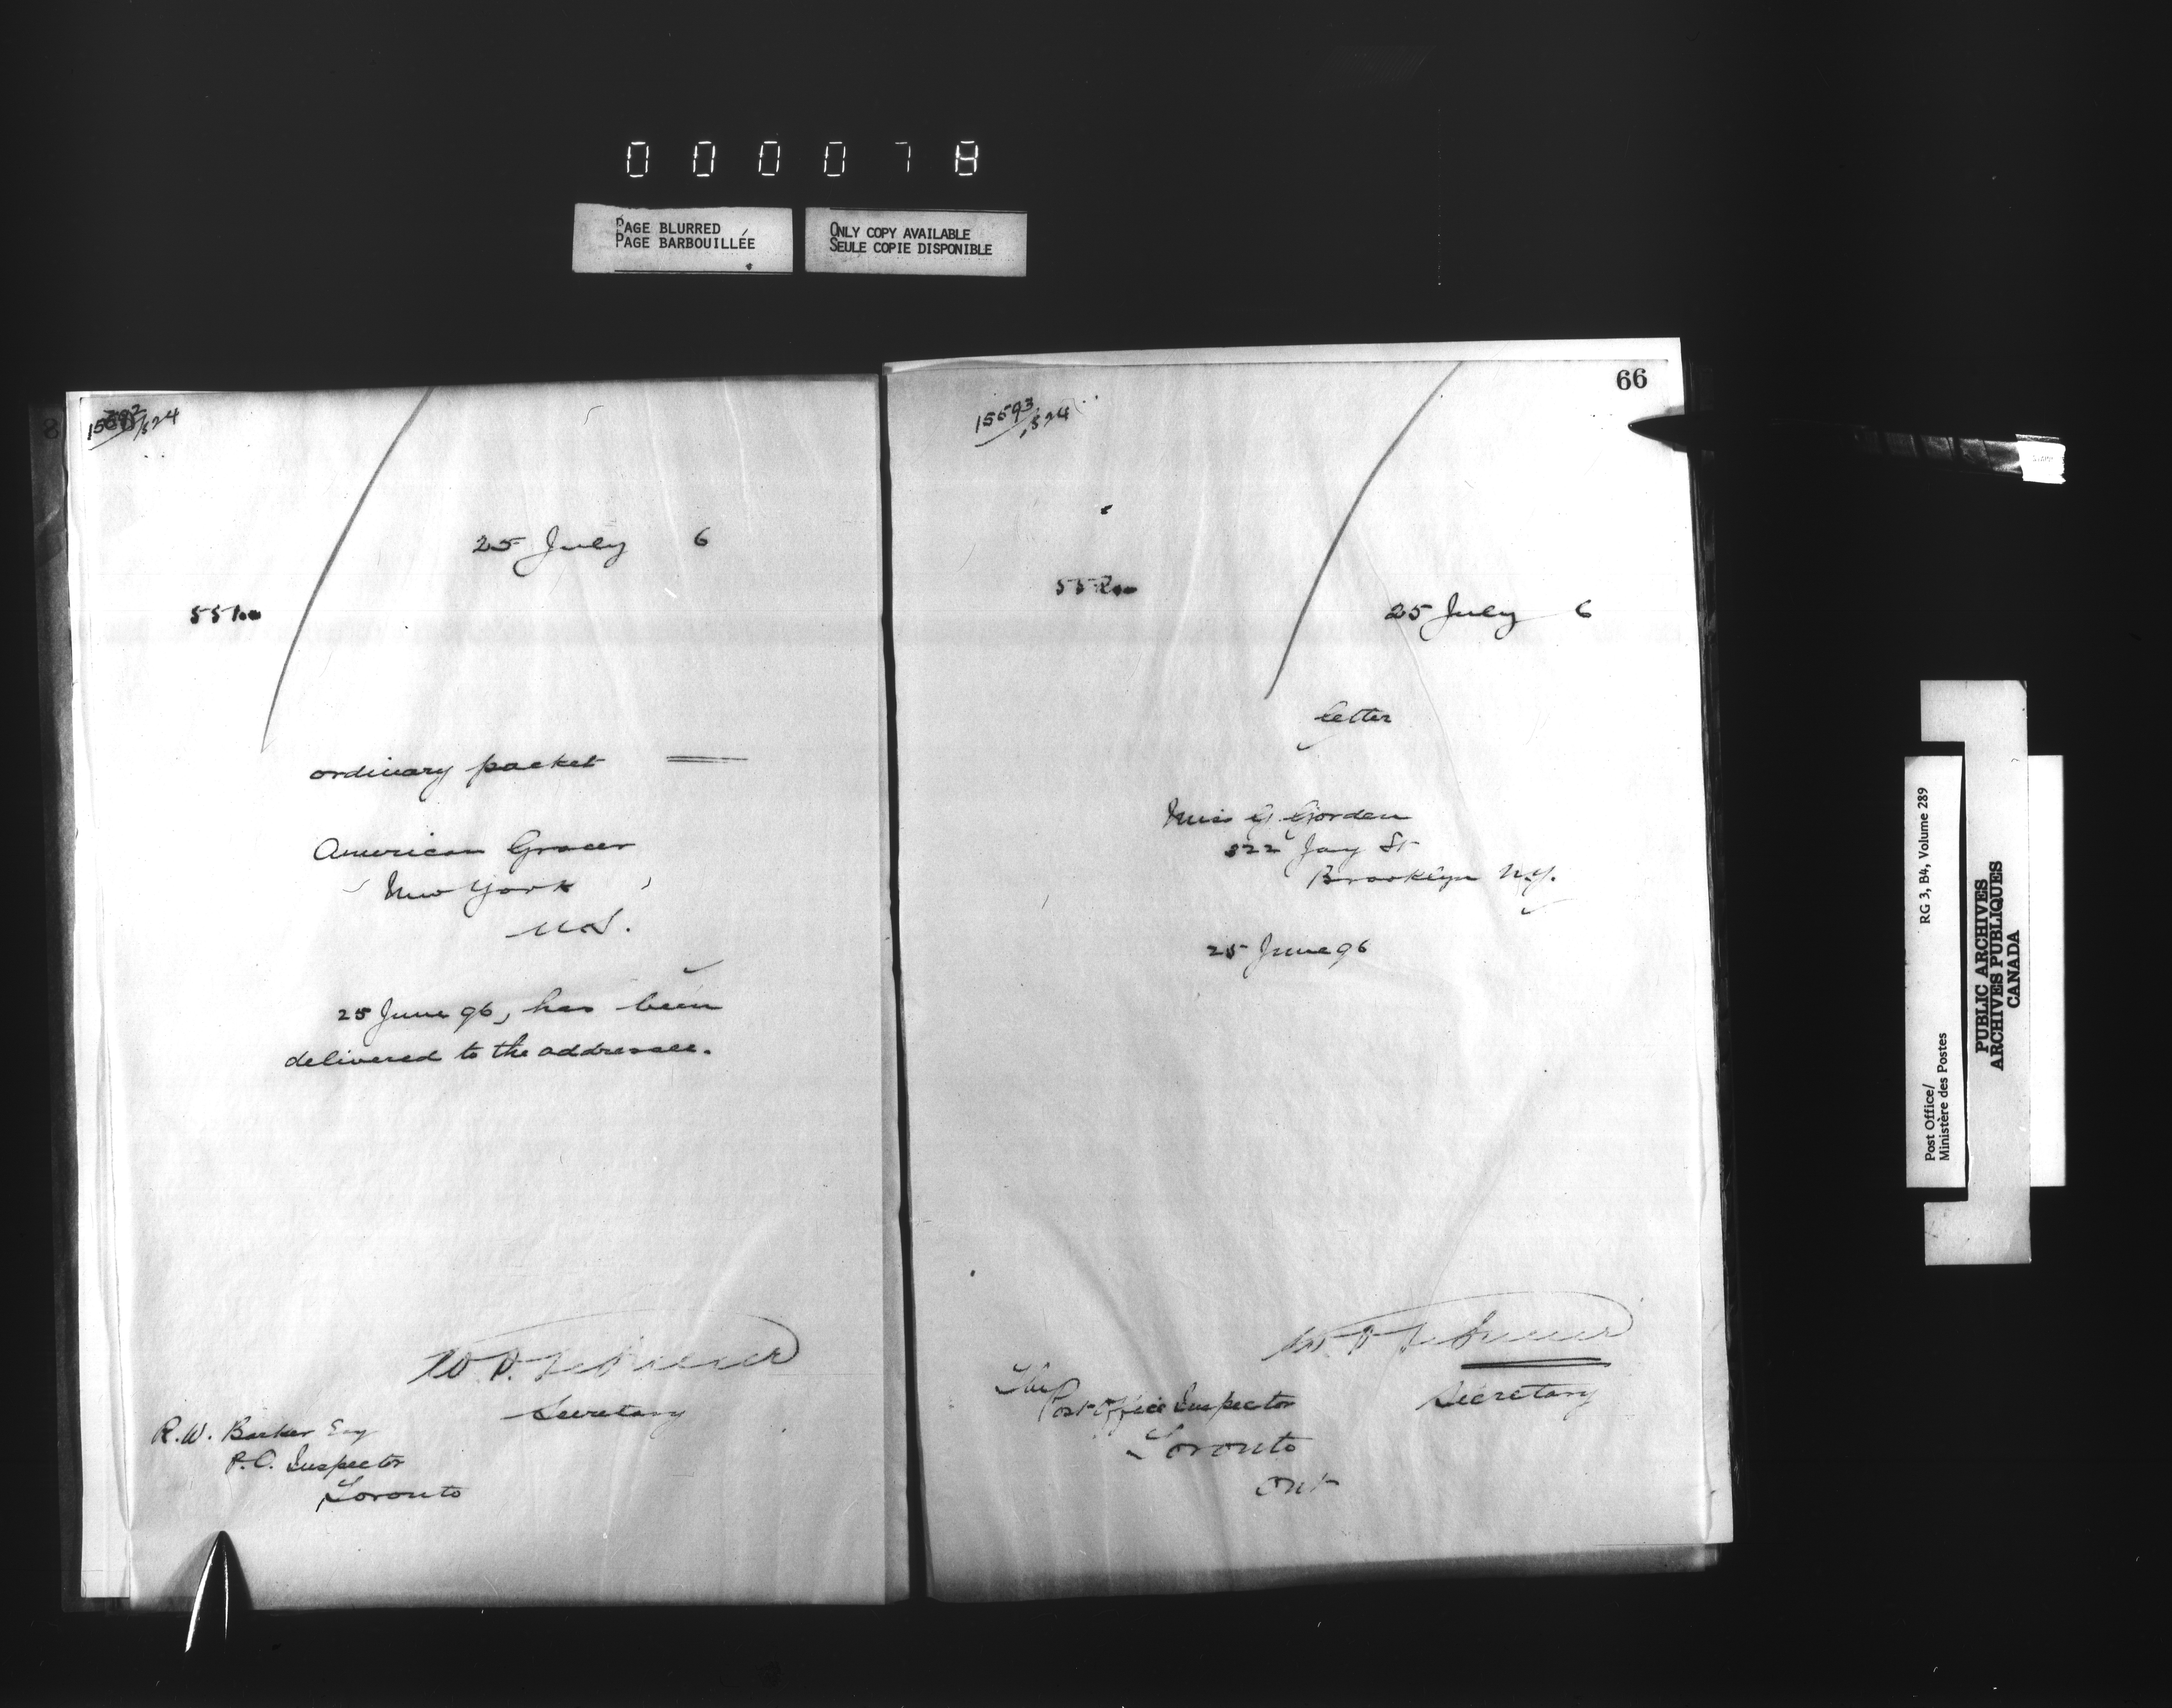 000078
PAGE BLURRED
PAGE BARBOUILLÉE
ONLY COPY AVAILABLE
SEULE COPIE DISPONIBLE
15592/524
25 July 6
551
ordinary packet
American Grocer
New York
U.S.
25 June 96, has been
delivered to the addressee.
W. D.
Secretary
R.W. Barker Esq
P.O. Inspector
Toronto
66
15593/524
552
25 July 6
letter
Miss G. Gorden
322 Jay St
Brooklyn N.Y.
25 June 96
Secretary
The
Post Office Inspector
Toronto
Ont
Post Office/
Ministère des Postes
RG 3, B4, Volume 289
PUBLIC ARCHIVES
ARCHIVES PUBLIQUES
CANADA